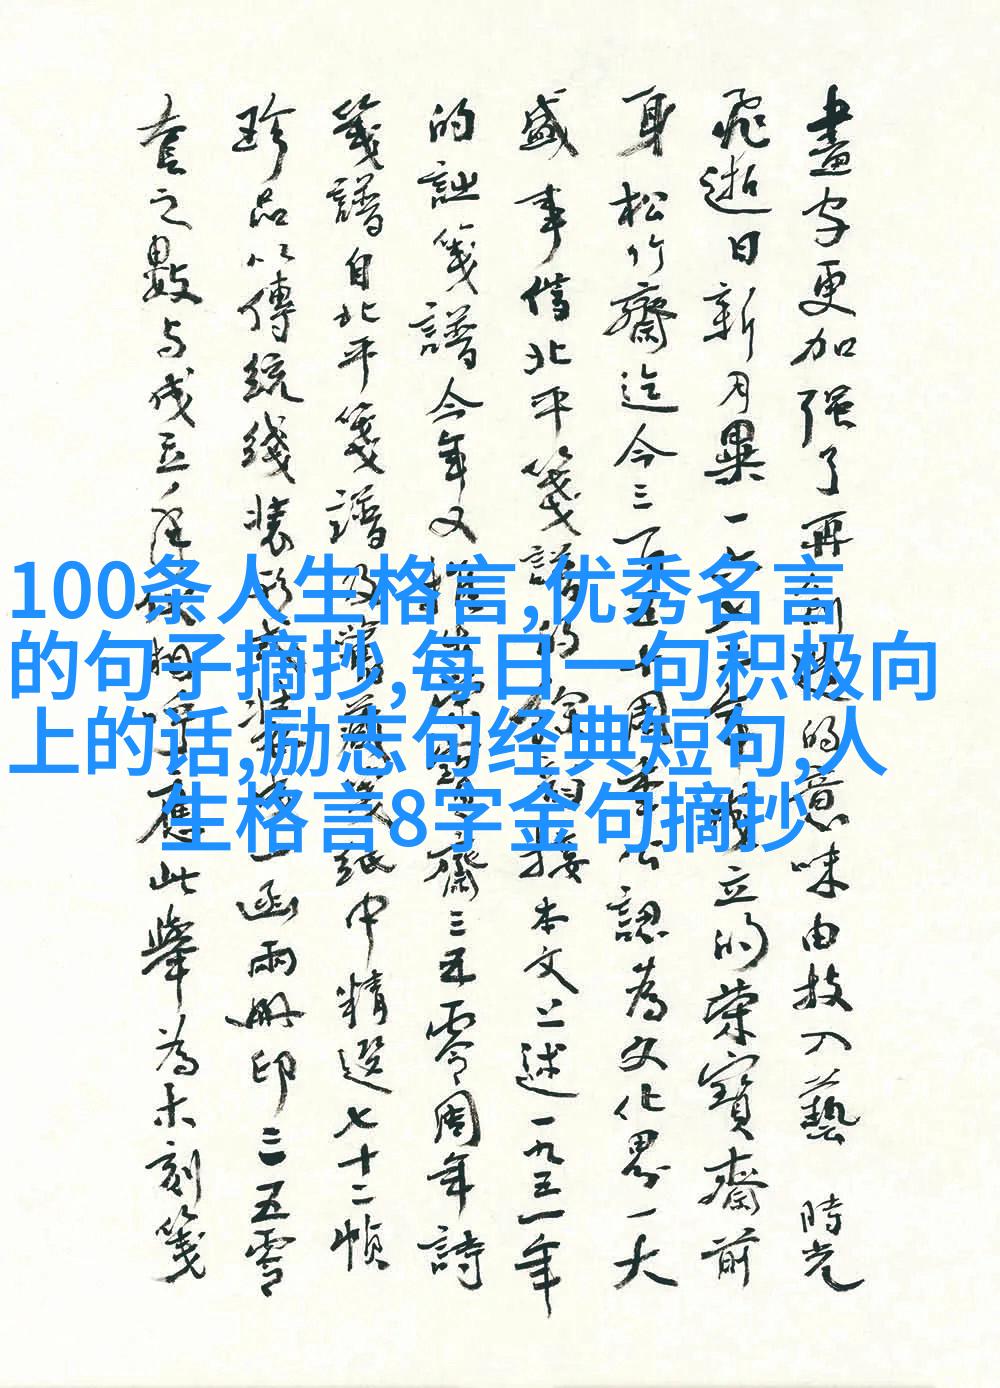 100条人生格言,优秀名言
的句子摘抄,每日一句积极向
上的话,励志句经典短句,人
生格言8字金句摘抄
畫字更加强了再創 的意味由技入藝 時光
飛逝日新月異一六 成立的榮寶齋前
身松竹齋迄今三百五十周年公認為文化界一大
盛事借北平箋譜的 接本文上述一九五一年
的 箋譜今年又推 齋三五零周年詩
箋譜自北平箋譜及 藏箋紙中精選七十二幀
珍品以傳統綫裝形 裝 一函兩冊印三五零
套之數与成立年 相呼應此舉為木刻箋